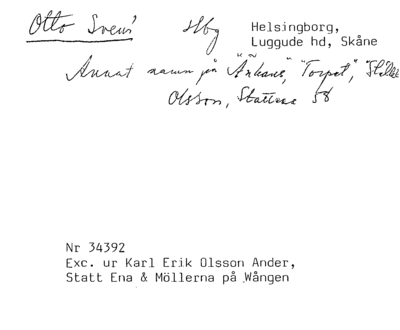 Otto Svens' Hbg Helsingborg,
Luggude hd, Skåne
Annat namn på "Århans", "Torpet", "Ställe
Olsson, Stattena 58
Nr 34392
Exc. ur Karl Erik Olsson Ander,
Statt Ena & Möllerna på Wången